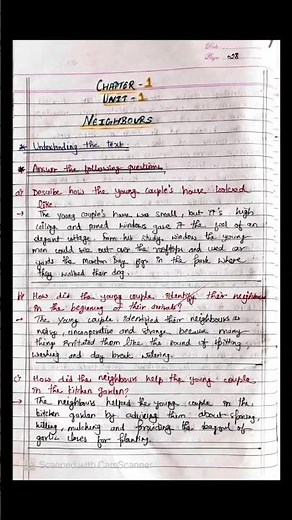 Date
Page 58
CHAPTER - 1
UNIT - 1
NEIGHBOURS
* Understanding the text
* Answer the following questions.
a) Describe how the young couple's house looked
like.
→ The young couple's house was small, but it's high
ceiling and paned windows gave it the feel of an
elegant cottage from his study, window the young
men could see out over the rooftops and used car
yards the Moreton bay figs in the park where
they walked their dog.
b) How did the young couple identify their neighbours
in the beginning of their arrival?
→ The young couple identified their neighbours as
noisy, inoperative and strange because many
things irritated them like the sound of spitting,
washing and day break watering.
c) How did the neighbours help the young couple
in the kitchen garden?
→ The neighbours helped the young couple in the
kitchen garden by advising them about spacing,
hilling, mulching and providing the bagout of
garlic cloves for planting.
Scanned with CamScanner